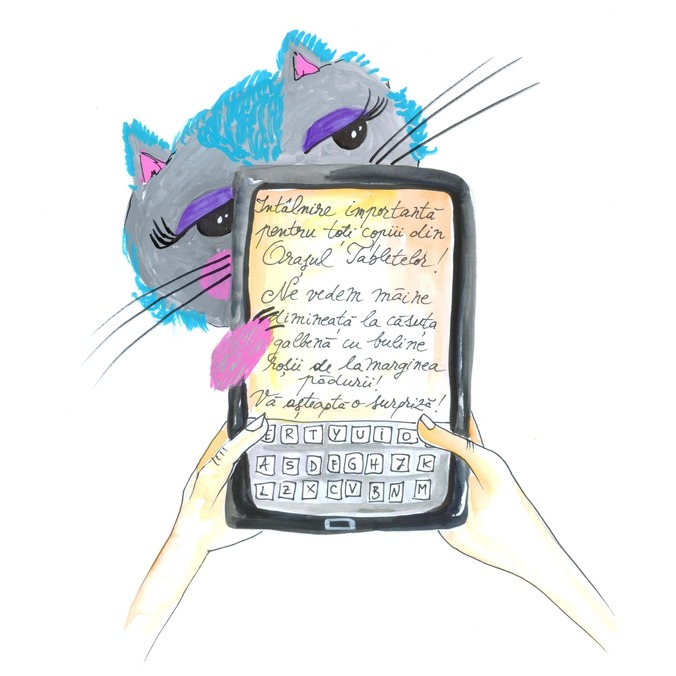 Întâlnire importantă
pentru toți copiii din
Orașul Tabletelor!
Ne vedem mâine
dimineață la căsuța
galbenă cu buline
roșii de la marginea
pădurii!
Vă așteaptă o surpriză!
E R T Y U I O
A S D F G H J K
L Z X C V B N M